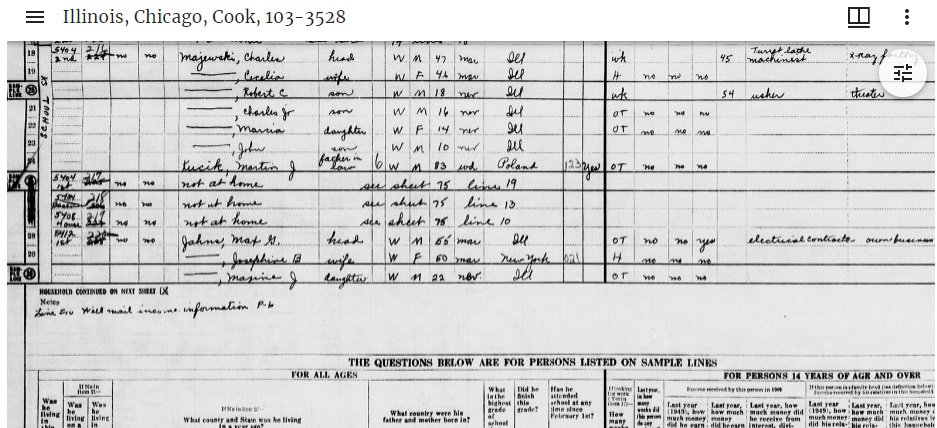 Illinois, Chicago, Cook, 103-3528
18 5404 2nd 216 no no Majewski, Charles head W M 47 mar Ill wk 45 Turret lathe machinest x-ray
19 ———, Cecelia wife W F 46 mar Ill H no no no
———, Robert C son W M 18 nev Ill wk 54 usher theater
21 ———, Charles Jr son W M 16 nev Ill OT no no no
22 ———, Marcia daughter W F 14 nev Ill OT no no no
23 ———, John son W M 10 nev Ill
Kucik, Martin J father in law 6 W M 83 wd Poland 123 Yes OT no no no
5404 1st 217 no no not at home see sheet 75 line 19
218 no no not at home see sheet 75 line 13
5408 House 219 no no not at home see sheet 75 line 10
28 5412 1st 220 no no Jahns, Max G. head W M 55 mar Ill OT no no yes electrical contractor own business
29 ———, Josephine B wife W F 50 mar New York 021 H no no no
———, Maxine J daughter W M 22 nev. Ill OT no no no
SCHOOL ST
HOUSEHOLD CONTINUED ON NEXT SHEET
Notes
Will mail income information P-6
THE QUESTIONS BELOW ARE FOR PERSONS LISTED ON SAMPLE LINES
FOR ALL AGES FOR PERSONS 14 YEARS OF AGE AND OVER
If No in item
Was he living in this
Was he living on a
Was he living in
What country and State was he living in a year ago?
What country were his father and mother born in?
What is the highest grade of school
Did he finish this grade?
Has he attended school at any time since February 1st?
Last year, in how many weeks did this person do
Income received by this person in 1949
Last year (1949), how much money did he earn
Last year, how much money did he earn
Last year, how much money did he receive from interest, divi-
Last year (1949), how much money did his rela-
Last year, how much money did his relatives in